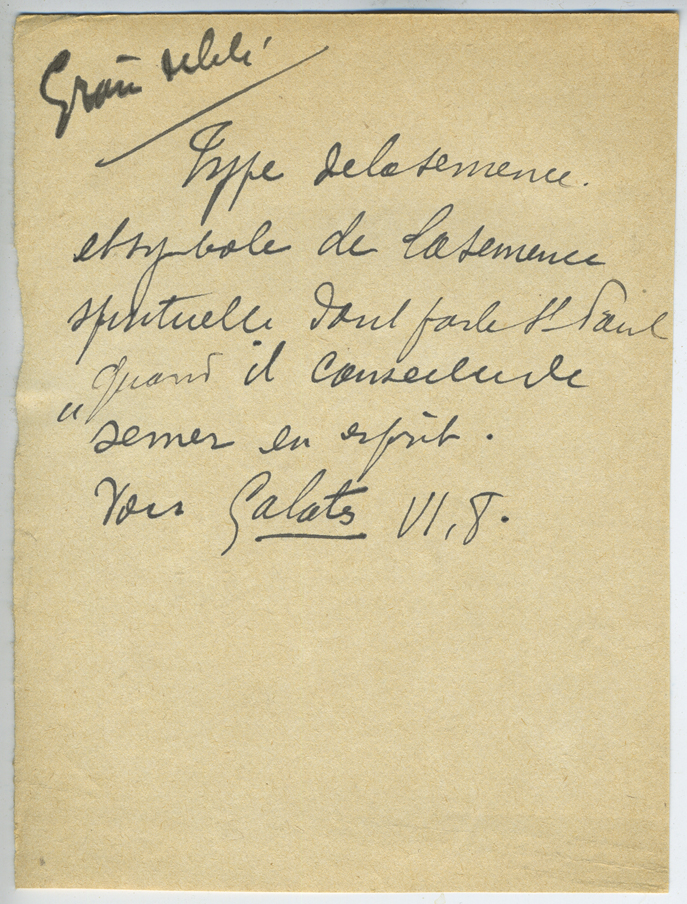 Grain de blé
Type de la semence.
et symbole de la semence
spirituelle dont parle St Paul
"quand il conseille de
semer en esprit.
Voir Galates VI, 8.